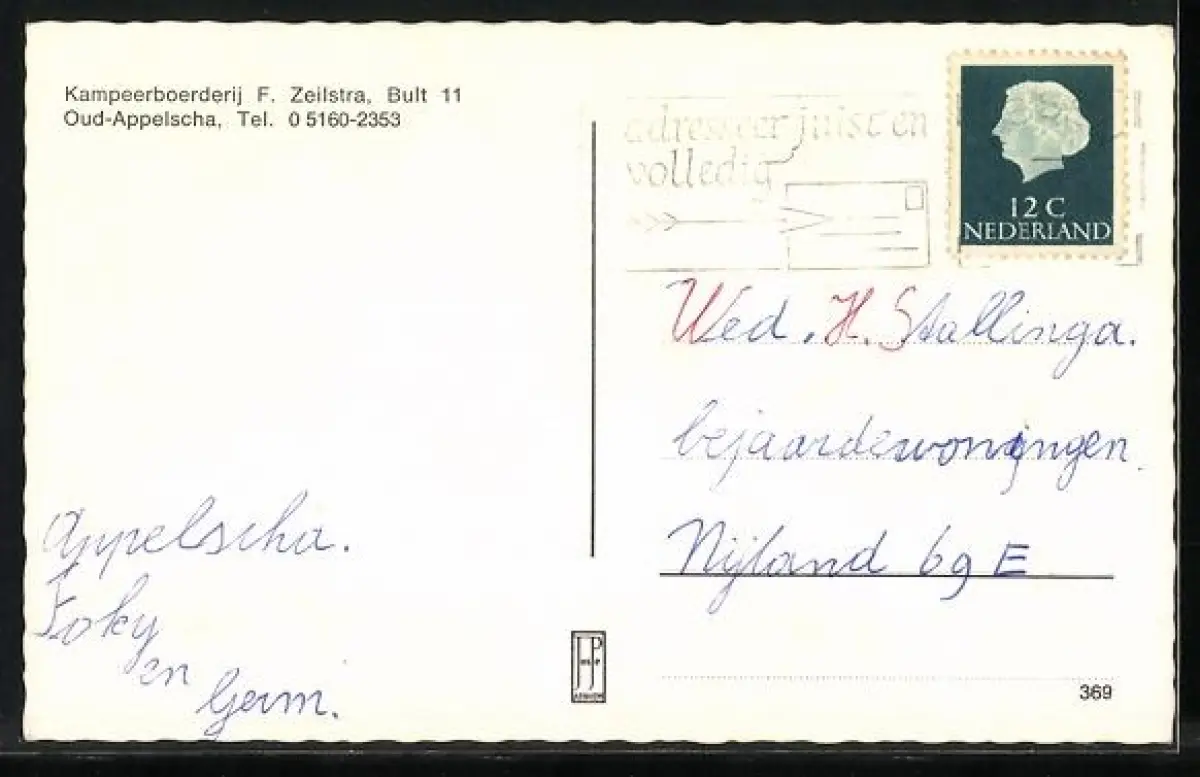 Kampeerboerderij F. Zeilstra, Bult 11
Oud-Appelscha, Tel. 0 5160-2353
adresseer juist en
volledig
12 C
NEDERLAND
Wed. H. Stallinga.
bejaardewoningen.
Nijland 69 E
Appelscha.
Foky
en
Germ.
369